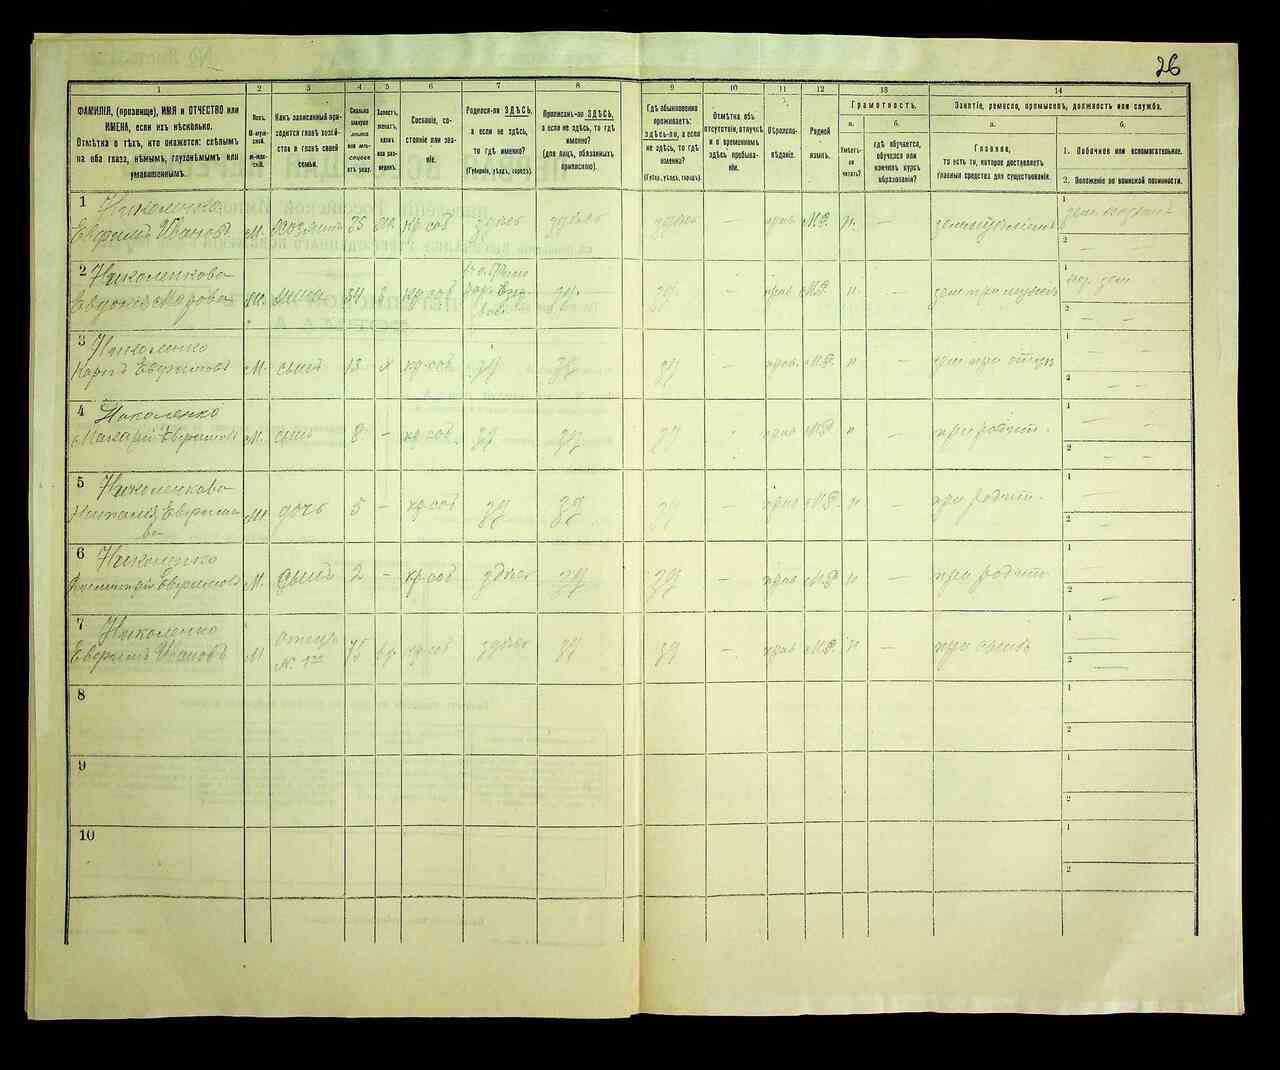 26
1 2 3 4 5 6 7 8 9 10 11 12 13 14
ФАМИЛІЯ, (прозвище), ИМЯ и ОТЧЕСТВО или ИМЕНА, если ихъ нѣсколько.
Отмѣтка о тѣхъ, кто окажется: слѣпымъ на оба глаза, нѣмымъ, глухонѣмымъ или умалишеннымъ.
Полъ.
М-муж-ской.
Ж-жен-скій.
Какъ записанный приходится главѣ хозяйства и главѣ своей семьи.
Сколько минуло лѣтъ или мѣсяцевъ отъ роду.
Холостъ, женатъ, вдовъ или разведенъ.
Сословіе, состояніе или званіе.
Родился-ли ЗДѢСЬ, а если не здѣсь, то гдѣ именно?
(Губернія, уѣздъ, городъ).
Приписанъ-ли ЗДѢСЬ, а если не здѣсь, то гдѣ именно?
(для лицъ, обязанныхъ припискою).
Гдѣ обыкновенно проживаетъ: здѣсь-ли, а если не здѣсь, то гдѣ именно?
(Губер., уѣздъ, городъ).
Отмѣтка объ отсутствіи, отлучкѣ и о временномъ здѣсь пребываніи.
Вѣроисповѣданіе.
Родной языкъ.
Грамотность.
а. Умѣетъ-ли читать?
б. гдѣ обучается, обучался или кончилъ курсъ образованія?
Занятіе, ремесло, промыселъ, должность или служба.
а. Главное, то есть то, которое доставляетъ главныя средства для существованія.
б. 1. Побочное или вспомогательное.
2. Положеніе по воинской повинности.
1 Николенко
Евфимъ Ивановъ М. хозяинъ 35 жен. кр. сов здѣсь здѣсь здѣсь — прав М.Р. н. —
1
2 —
2 Николенкова
Евдокія М. жена 34 кр сов зд. зд — прав М.Р. н —
1
2 —
3 Николенко
Карпъ Евфимовъ М. сынъ 13 х кр-сов зд зд зд — прав. М.Р. н —
1 —
2 —
4 Николенко
Макарій Евфимовъ М. сынъ 8 — кр. сов. зд зд зд прав М.Р. н — при родит.
1 —
2 —
5 Николенкова
Наталія Евфимова дочь 5 — кр сов зд зд зд — прав М.Р. н — при родит.
1 —
2 —
6 Николенко
Евфимовъ М. сынъ 2 — кр. сов здѣсь зд зд — прав М.Р. н — при родит
1 —
2 —
7 Николенко
Евфимъ Ивановъ М отецъ № 1го 75 вд кр сов здѣсь зд зд — прав М.Р. н — при сынѣ
1 —
2 —
8
1
2
9
1
2
10
1
2